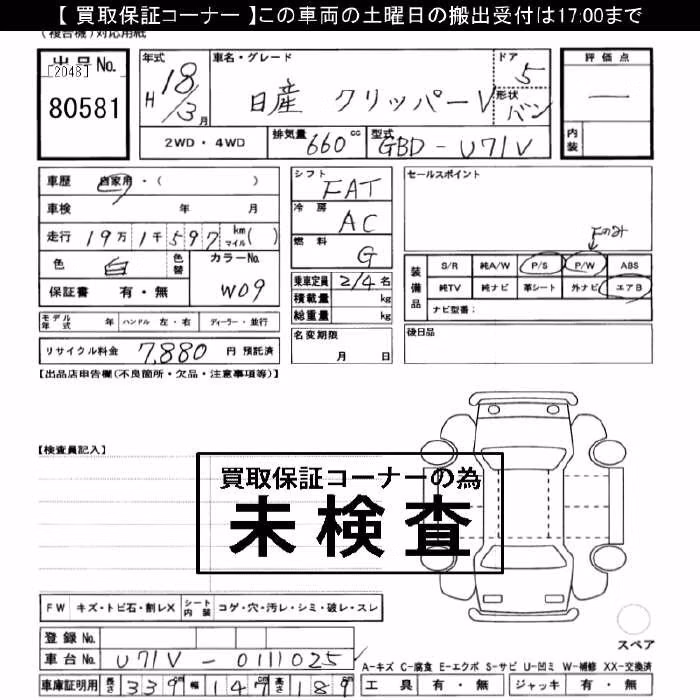 【 買取保証コーナー 】この車両の土曜日の搬出受付は17:00まで
(複合機)対応用紙
出品No.
[2048]
80581
年式
H 18/3 月
車名・グレード
日産 クリッパーV
ドア
5
形状
バン
2WD・4WD
排気量
660 cc
型式
GBD-U71V
評価点
―
内装
車歴 自家用・( )
車検 年 月
走行 19万1千597 km マイル( )
色 白 色替
カラーNo.
W09
保証書 有・無
モデル年式 年 ハンドル 左・右 ディーラー・並行
リサイクル料金 7,880 円 預託済
シフト
FAT
冷房
AC
燃料
G
乗車定員 2/4 名
積載量 kg
総重量 kg
名変期限
月 日
セールスポイント
Fのみ
装備品
S/R 純A/W P/S P/W ABS
純TV 純ナビ 革シート 外ナビ エアB
ナビ型番:
後日品
【出品店申告欄(不良箇所・欠品・注意事項等)】
【検査員記入】
買取保証コーナーの為
未検査
FW キズ・トビ石・割レX シート内装 コゲ・穴・汚レ・シミ・破レ・スレ
登録No.
車台No. U71V-0111025
車庫証明用 長さ 339 幅 147 高さ 189
スペア
A-キズ C-腐食 E-エクボ S-サビ U-凹ミ W-補修 XX-交換済
工具 有・無 ジャッキ 有・無